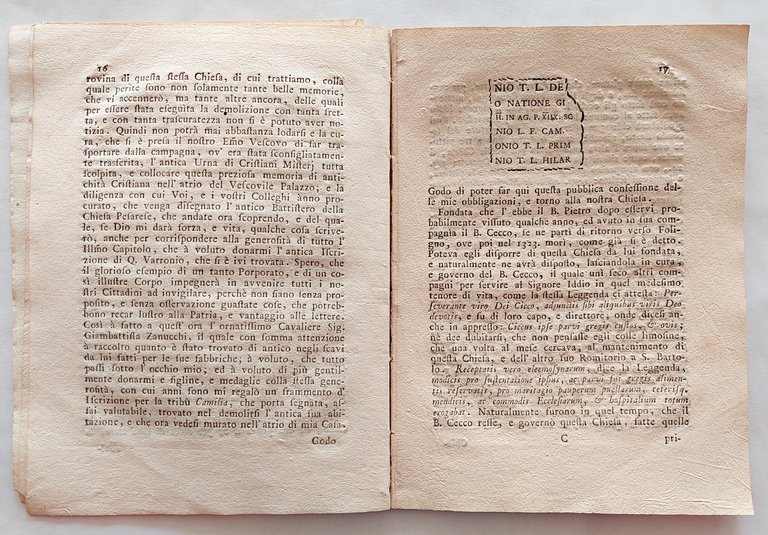 16
rovina di questa stessa Chiesa, di cui trattiamo, colla
quale perite sono non solamente tante belle memorie,
che vi accennerò, ma tante altre ancora, delle quali
per essere stata eseguita la demolizione con tanta fret-
ta, e con tanta trascuratezza non si è potuto aver no-
tizia. Quindi non potrà mai abbastanza lodarsi e la cu-
ra, che si è presa il nostro Emo Vescovo di far tra-
sportare dalla campagna, ov' era stata sconsigliatamen-
te trasferita, l'antica Urna di Cristiani Misterj tutta
scolpita, e collocare questa preziosa memoria di anti-
chità Cristiana nell' atrio del Vescovile Palazzo; e la
diligenza con cui Voi, e i vostri Colleghi ànno pro-
curato, che venga disegnato l'antico Battistero della
Chiesa Pesarese, che andate ora scoprendo, e del qua-
le, se Dio mi darà forza, e vita, qualche cosa scrive-
rò, anche per corrispondere alla generosità di tutto l'
Illmo Capitolo, che à voluto donarmi l'antica Iscri-
zione di Q. Varronio, che si è ivi trovata. Spero, che
il glorioso esempio di un tanto Porporato, e di un co-
sì illustre Corpo impegnerà in avvenire tutti i no-
stri Cittadini ad invigilare, perchè non siano senza pro-
posito, e senza osservazione guastate cose, che potreb-
bono recar lustro alla Patria, e vantaggio alle lettere.
Così à fatto a quest' ora l'ornatissimo Cavaliere Sig.
Giambattista Zanucchi, il quale con somma attenzione
à raccolto quanto è stato trovato di antico negli scavi
da lui fatti per le sue fabbriche; à voluto, che tutto
passi sotto l'occhio mio; ed à voluto di più gentil-
mente donarmi e figline, e medaglie colla stessa gene-
rosità, con cui anni sono mi regalò un frammento d'
Iscrizione per la tribù Camilia, che porta segnata, as-
sai valutabile, trovato nel demolirsi l'antica sua abi-
tazione, e che ora vedesi murato nell'atrio di mia Casa.
Godo
17
NIO T. L. DE
O NATIONE GI
II. IN AG. P. XIIX. SG
NIO L. F. CAM.
ONIO T. L. PRIM
NIO T. L. HILAR
Godo di poter far qui questa pubblica confessione del-
le mie obbligazioni, e torno alla nostra Chiesa.
Fondata che l' ebbe il B. Pietro dopo esservi pro-
babilmente vissuto qualche anno, ed avuto in sua com-
pagnia il B. Cecco, se ne partì di ritorno verso Foli-
gno, ove poi nel 1323. morì, come già si è detto.
Poteva egli disporre di questa Chiesa da lui fondata,
e naturalmente ne avrà disposto, lasciandola in cura,
e governo del B. Cecco, il quale unì seco altri compa-
gni per servire al Signore Iddio in quel medesimo
tenore di vita, come la stessa Leggenda ci attesta: Per-
severante viro Dei Cicco, adjunctis sibi aliquibus viris Deo
devotis, e fu di loro capo, e direttore; onde dicesi an-
che in appresso: Ciccus ipse parvi gregis custos, & ovis;
nè dee dubitarsi, che non pensasse egli colle limosine,
che una volta al mese cercava, al mantenimento di
questa Chiesa, e dell' altro suo Romitorio a S. Barto-
lo. Receptatis vero eleemosynarum, dice la Leggenda,
modicis pro sustentatione ipsius, ac parvi sui gregis alimen-
tis reservatis, pro maritagio pauperum puellarum, ceterisq.
mendicis, ac commodis Ecclesiarum, & hospitalium totum
erogabat. Naturalmente furono in quel tempo, che il
B. Cecco resse, e governò questa Chiesa, fatte quelle
C pri-